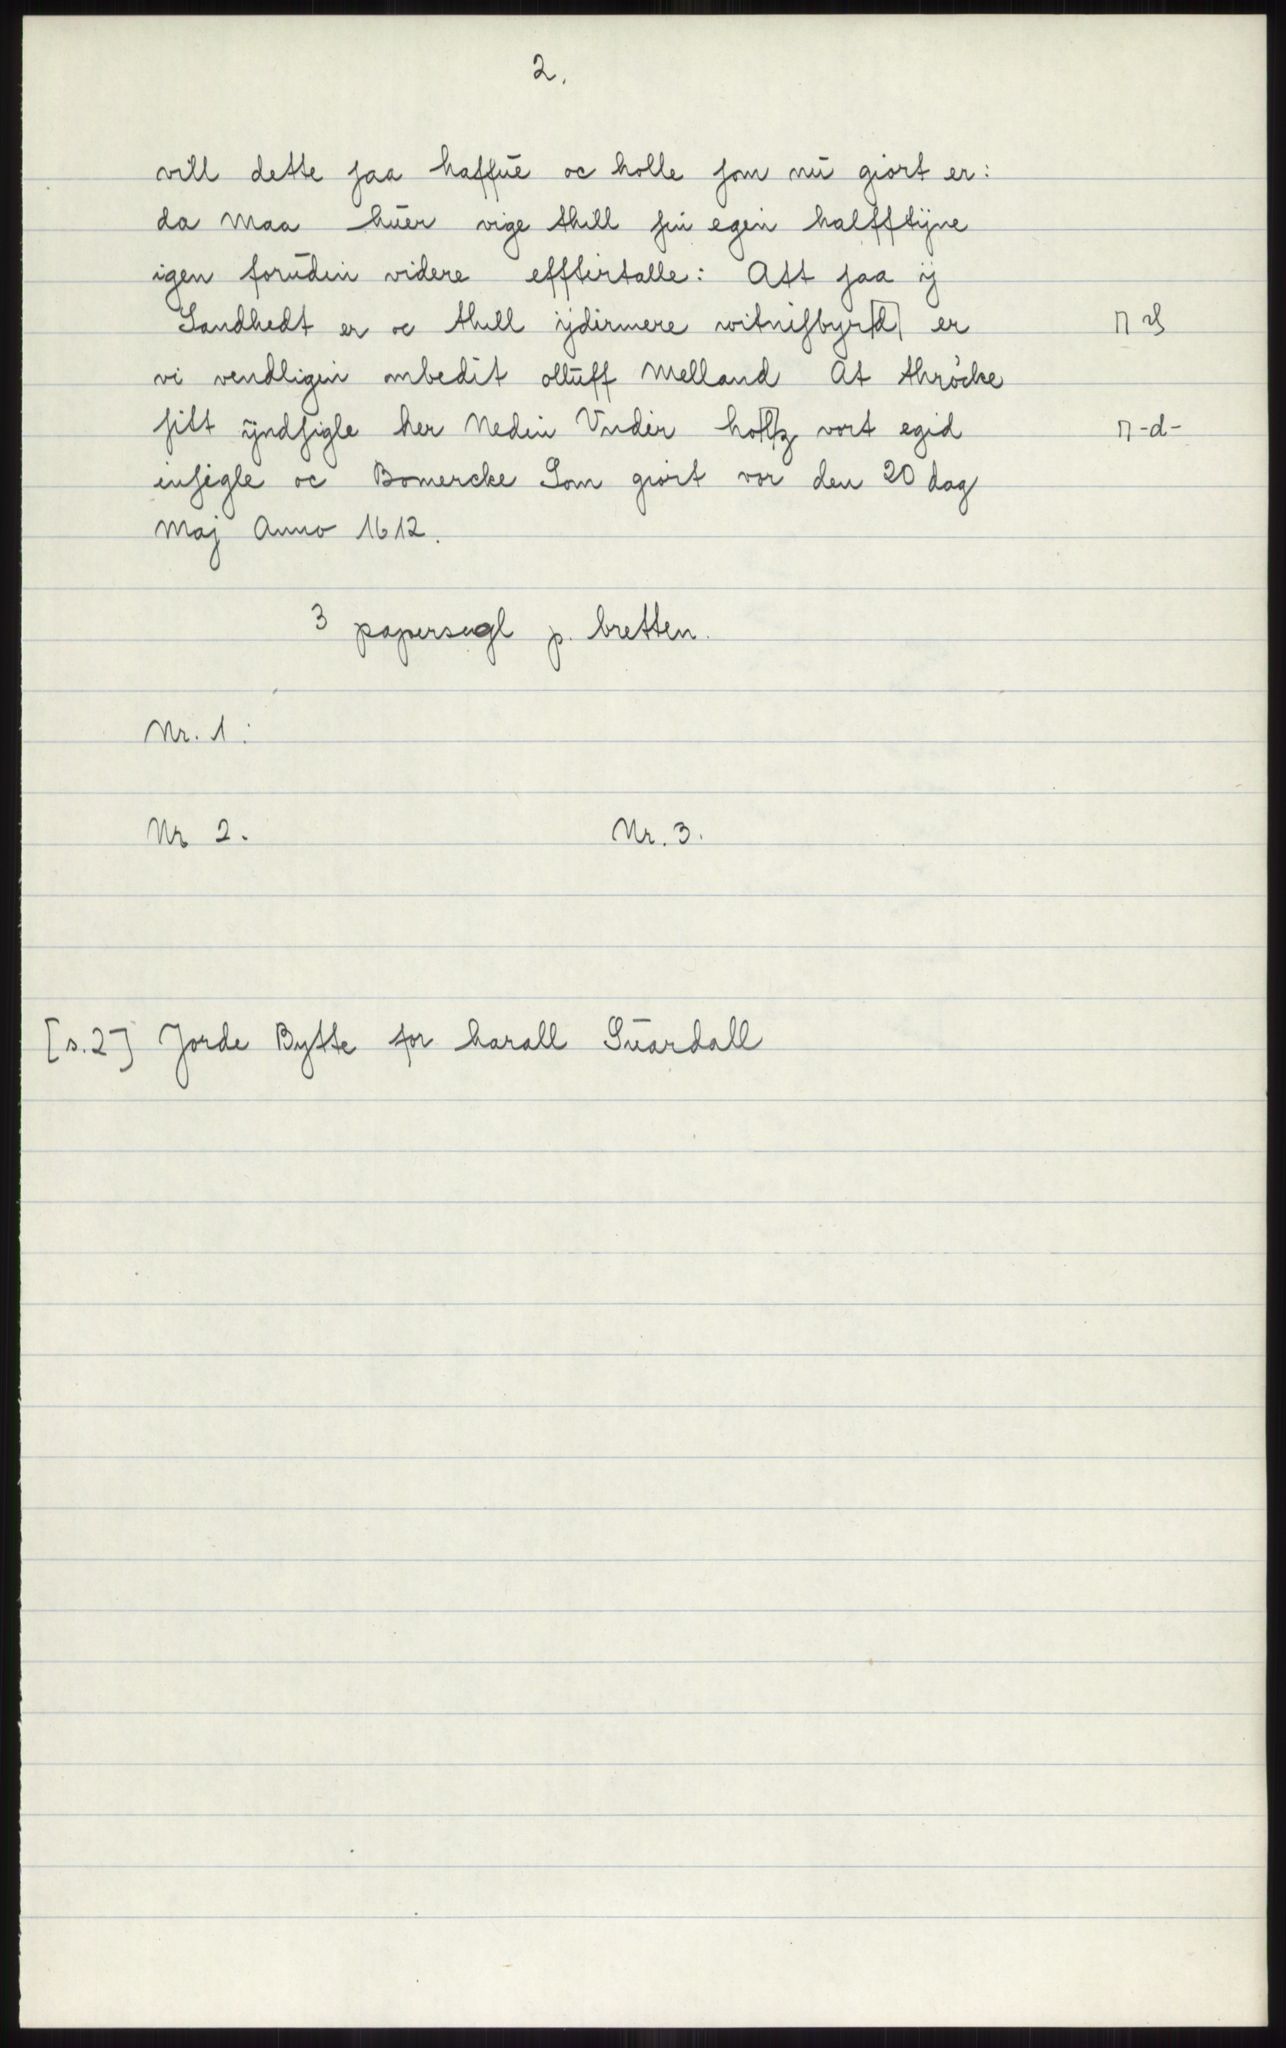 2.
vill dette ſaa haffūe oc holle ſom nū giort er:
da maa hūer vige thill ſin egen halfftijne
igen forūdin videre efftirtalle: Att ſaa ij
Sandhedt er oc thill ijdirmere witniſbyr[d] er
vi vendligin ombedit ollūff Melland At thröcke
ſitt ÿndſigle her Nedin Vndir ho[ſ]z vort egid
inſigle oc Bomercke Som giort vor den 20 dag
Maj Anno 1612.
-d-
3 papersegl p. bretten.
Nr. 1:
Nr 2. Nr. 3.
[s.2] Jorde Bytte for harall Sūardall